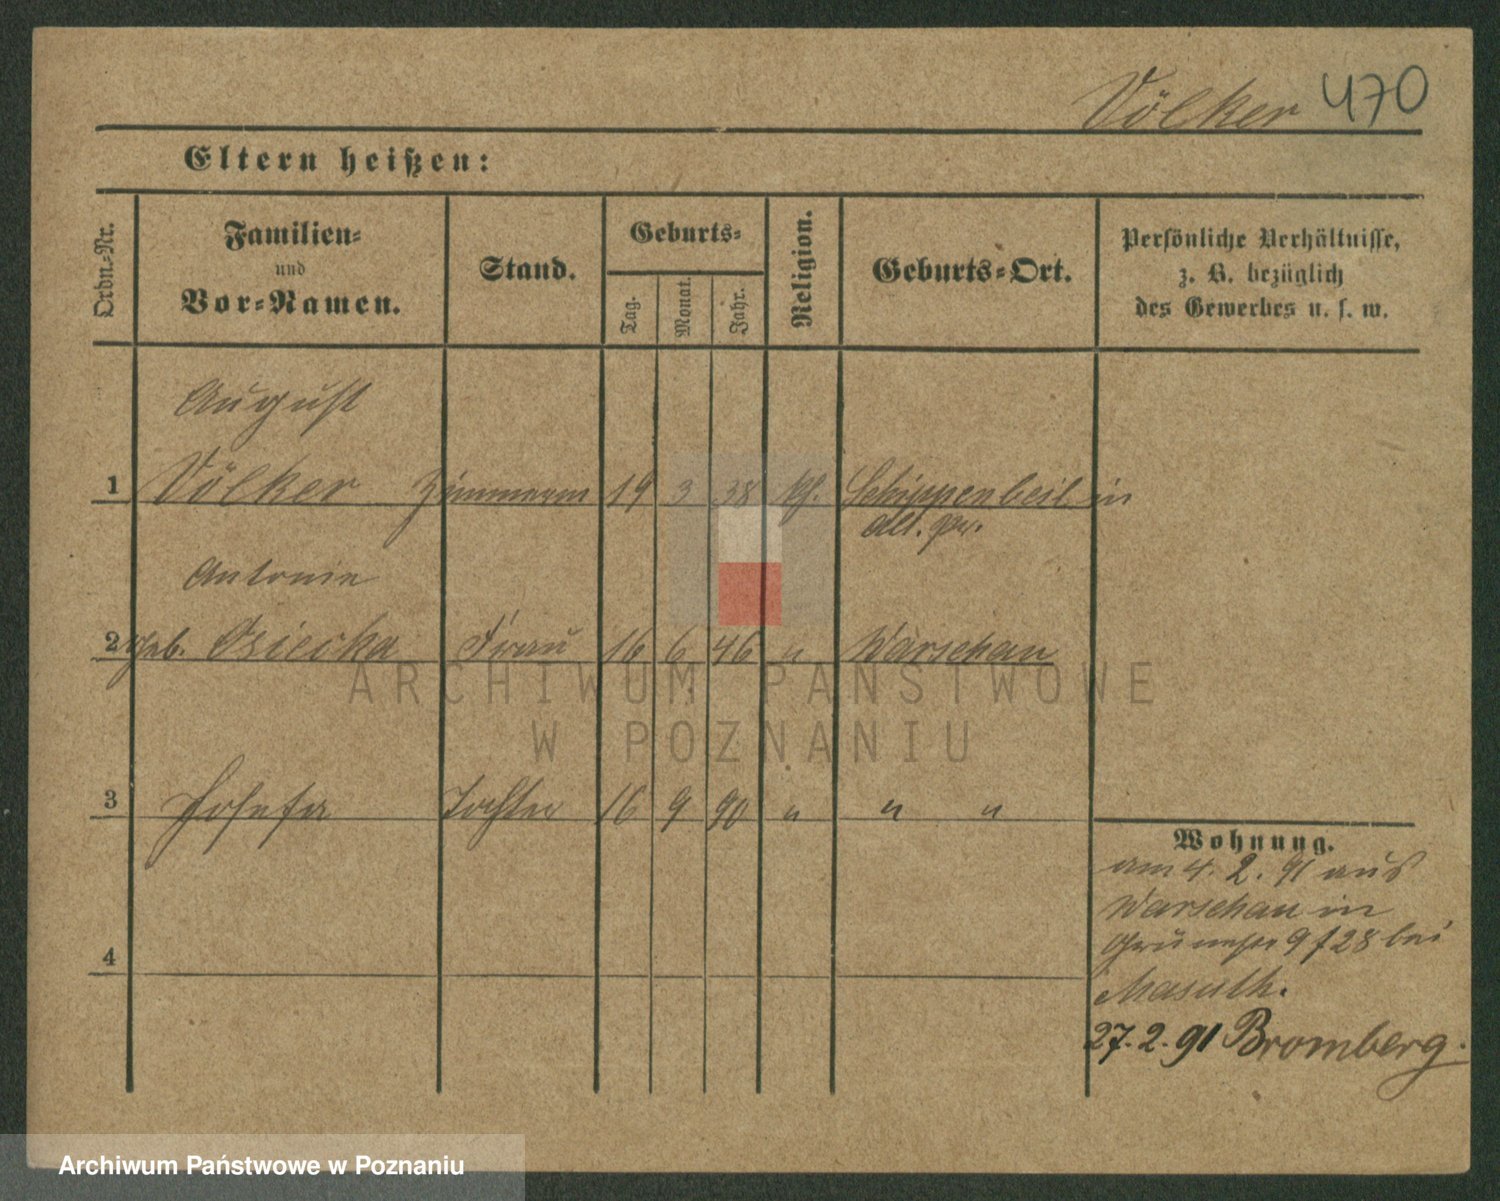 Völker 470
Eltern heißen:
Ordn.-Nr.
Familien-
und
Vor-Namen.
Stand.
Geburts-
Tag.
Monat.
Jahr.
Religion.
Geburts-Ort.
Persönliche Verhältnisse,
z. B. bezüglich
des Gewerbes u. s. w.
August
1 Völker Zimmerm 19 3 38 kh. Schippenbeil in
Antonie
2 geb. Osiecka Frau 16 6 46 " Warschau
3 Josefa Tochter 16 9 90 " " "
4
Wohnung.
am 4. 2. 91 aus
Warschau in
28 bei
27. 2. 91 Bromberg.
ARCHIWUM PAŃSTWOWE
W POZNANIU
Archiwum Państwowe w Poznaniu